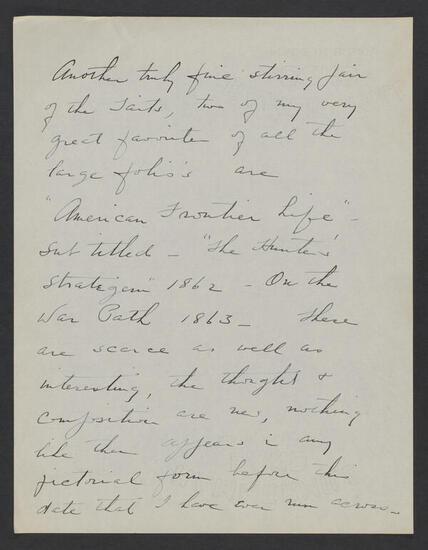 Another truly fine stirring pair
of the Taits, two of my very
great favorite of all the
large folio's are
"American Frontier Life" -
Sub titled - "The Hunter's
Strategem" 1862 - On the
War Path 1863 - These
are scarce as well as
interesting, the thought &
composition are new, nothing
like them appears in any
pictorial form before this
date that I have ever run across -